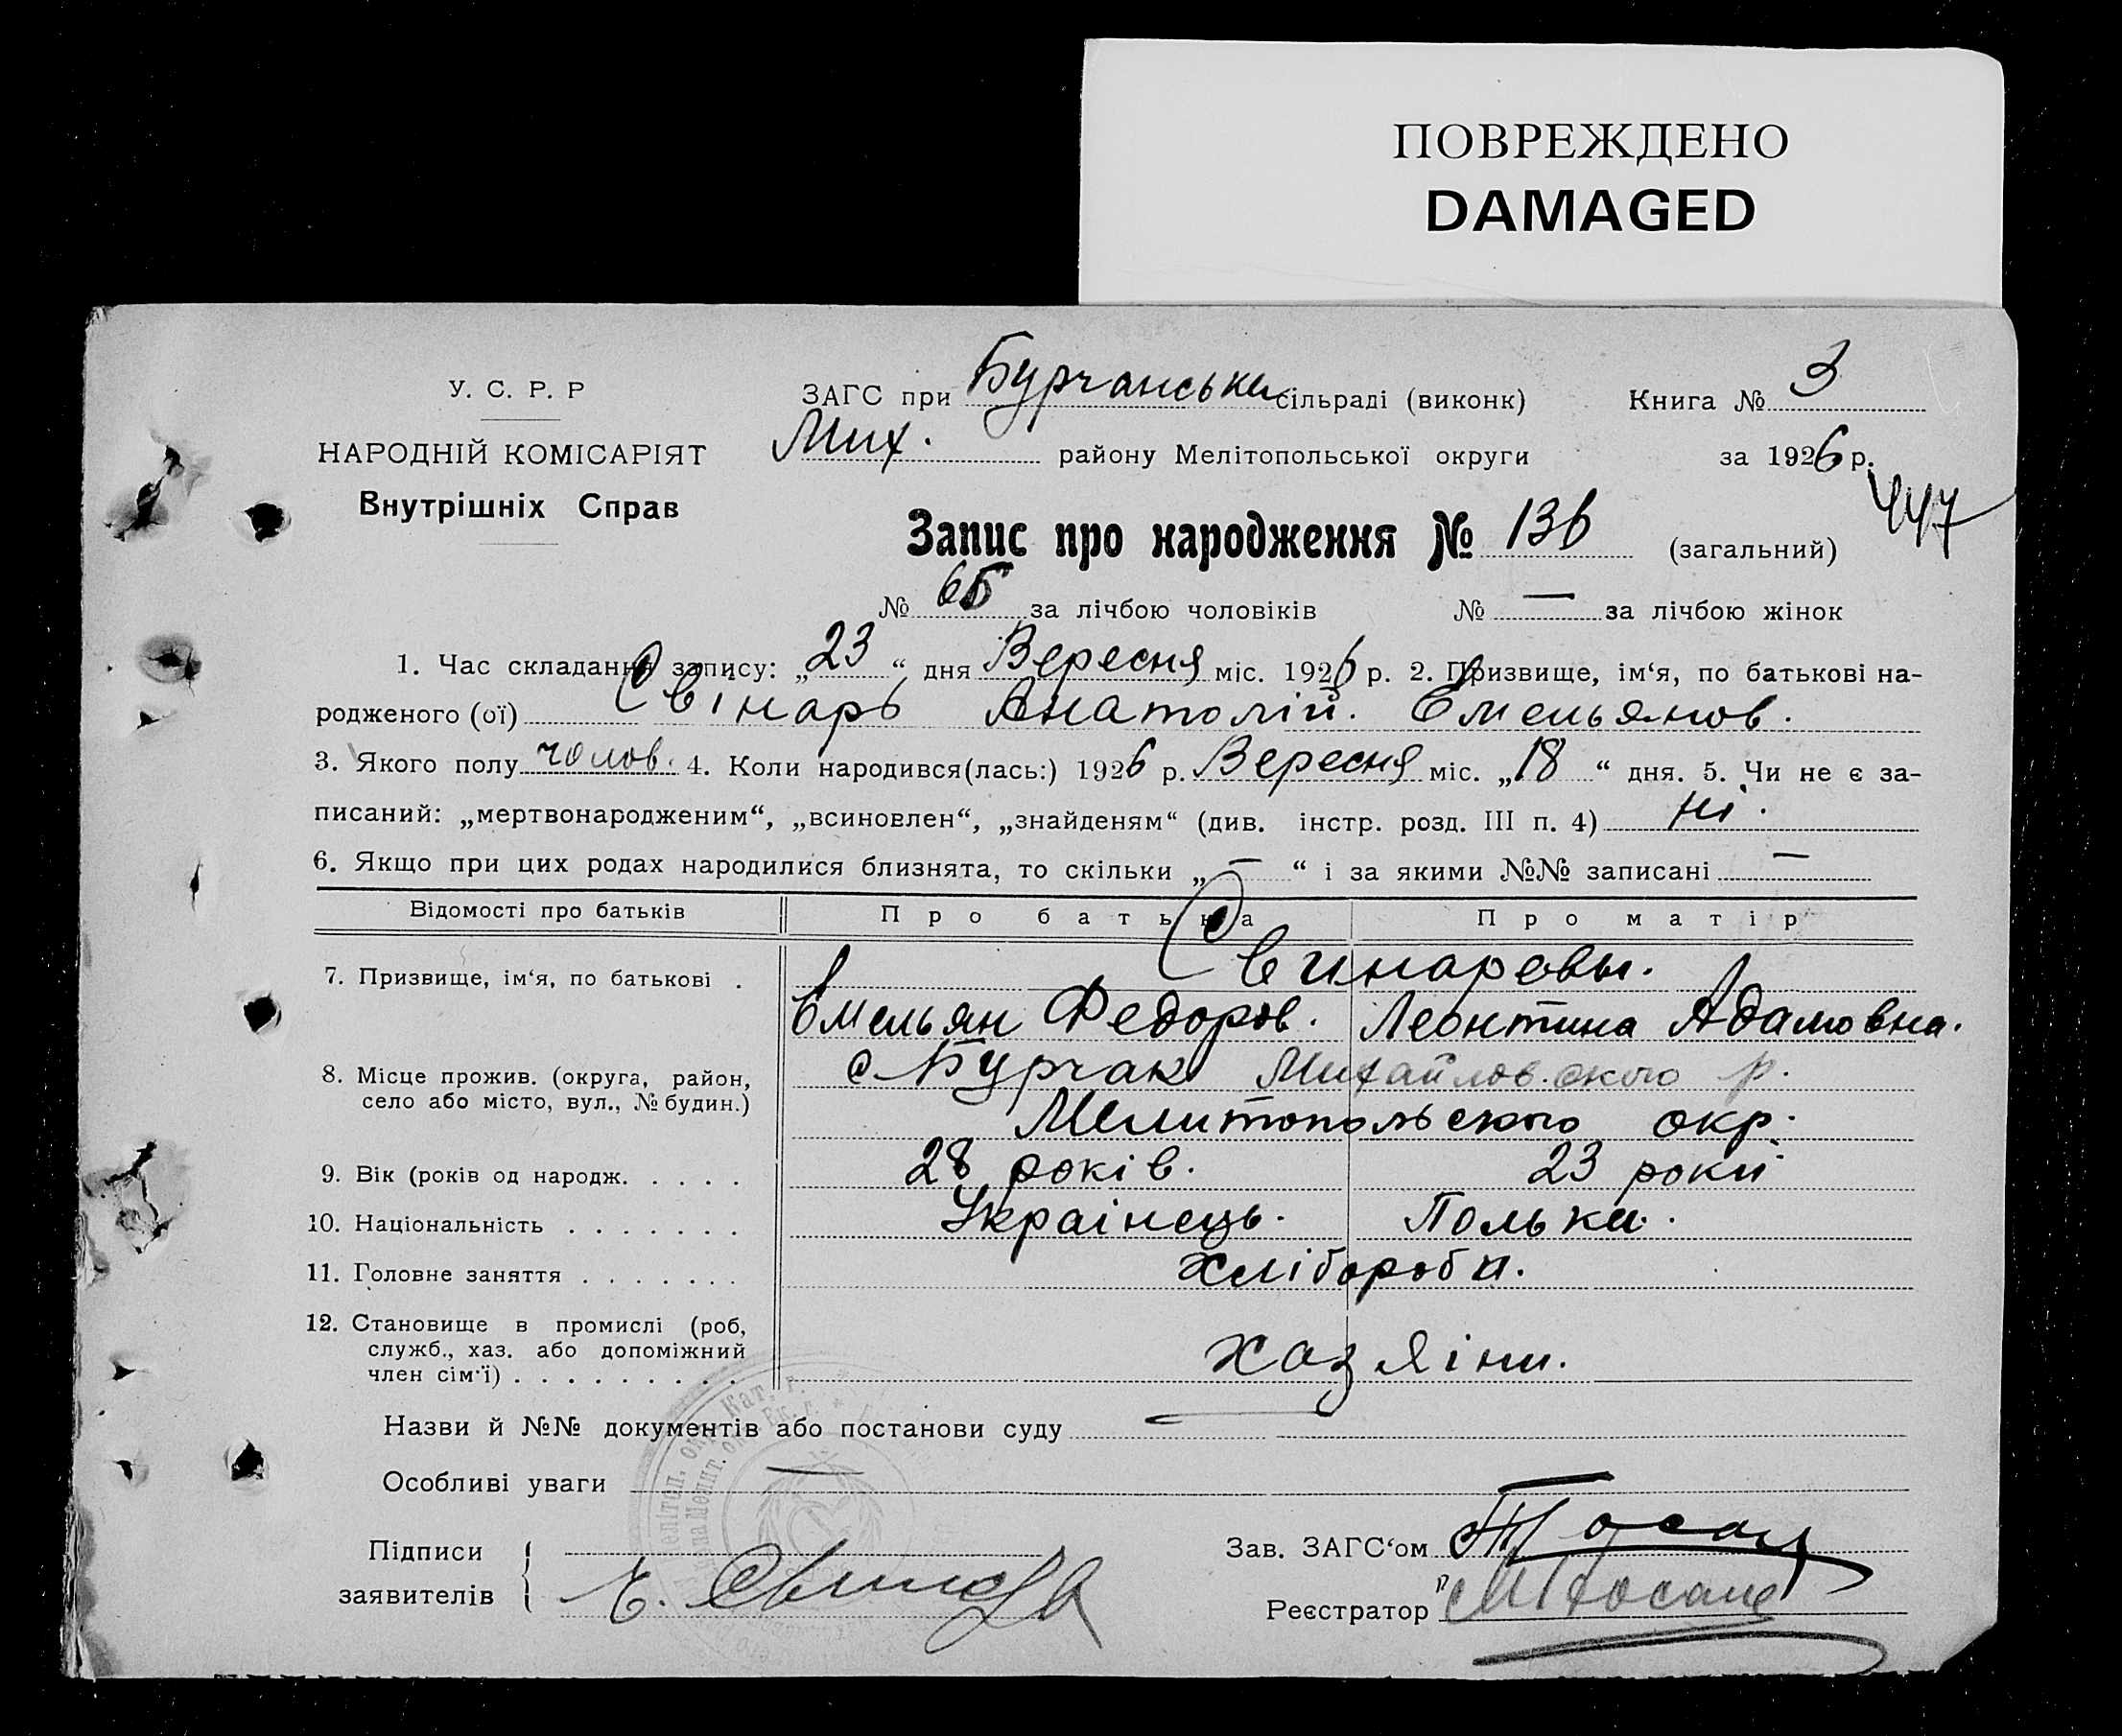 ПОВРЕЖДЕНО
DAMAGED
У. С. Р. Р
НАРОДНІЙ КОМІСАРІЯТ
Внутрішніх Справ
ЗАГС при Бурчанська сільраді (виконк)
Мих. району Мелітопольської округи
Книга № 3
за 1926 р.
447
Запис про народження № 136 (загальний)
№ 65 за лічбою чоловіків № — за лічбою жінок
1. Час складання запису: „23“ дня Вересня міс. 1926 р. 2. Призвище, ім‘я, по батькові на-
родженого (ої) Свінарь Анатолій. Емельянов.
3. Якого полу чолов. 4. Коли народився(лась:) 1926 р. Вересня міс. „18“ дня. 5. Чи не є за-
писаний: „мертвонародженим“, „всиновлен“, „знайденям“ (див. інстр. розд. III п. 4) ні.
6. Якщо при цих родах народилися близнята, то скільки „—“ і за якими №№ записані —
Відомості про батьків Про батька Про матір
7. Призвище, ім‘я, по батькові . Свинаревы.
Емельян Федоров. Леонтина Адамовна.
8. Місце прожив. (округа, район, село або місто, вул., № будин.) с Бурчак Михайловского р.
Мелитопольского окр.
9. Вік (років од народж. . . . . 28 років. 23 роки
10. Національність . . . . . . . Украінець. Полька.
11. Головне заняття . . . . . . . Хлібороби.
12. Становище в промислі (роб,
служб., хаз. або допоміжний
член сім‘ї) . . . . . . . . . хазяіни.
Назви й №№ документів або постанови суду —
Особливі уваги —
Підписи
заявителів
Зав. ЗАГС‘ом
Реєстратор